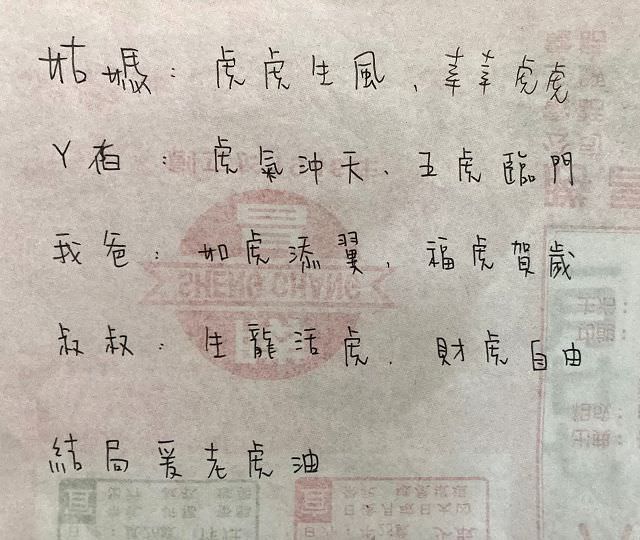 姑媽：虎虎生風、莘莘虎虎
Y 伯：虎氣沖天、五虎臨門
我爸：如虎添翼、福虎賀歲
SHENG CHANG
叔叔：生龍活虎、財虎自由
結局爰老虎油